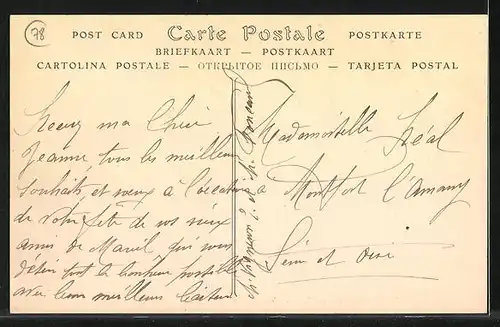 78
POST CARD Carte Postale POSTKARTE
BRIEFKAART — POSTKAART
CARTOLINA POSTALE — ОТКРЫТОЕ ПИСЬМО — TARJETA POSTAL
ma Chère
Jeanne tous les meilleurs
souhaits et vœux à l'occasion
de votre fête de vos vieux
amis de Mareil, qui vous
tout le bonheur possible
avec leurs meilleurs baisers
Mademoiselle Réal
Montfort l'Amaury
Seine et Oise